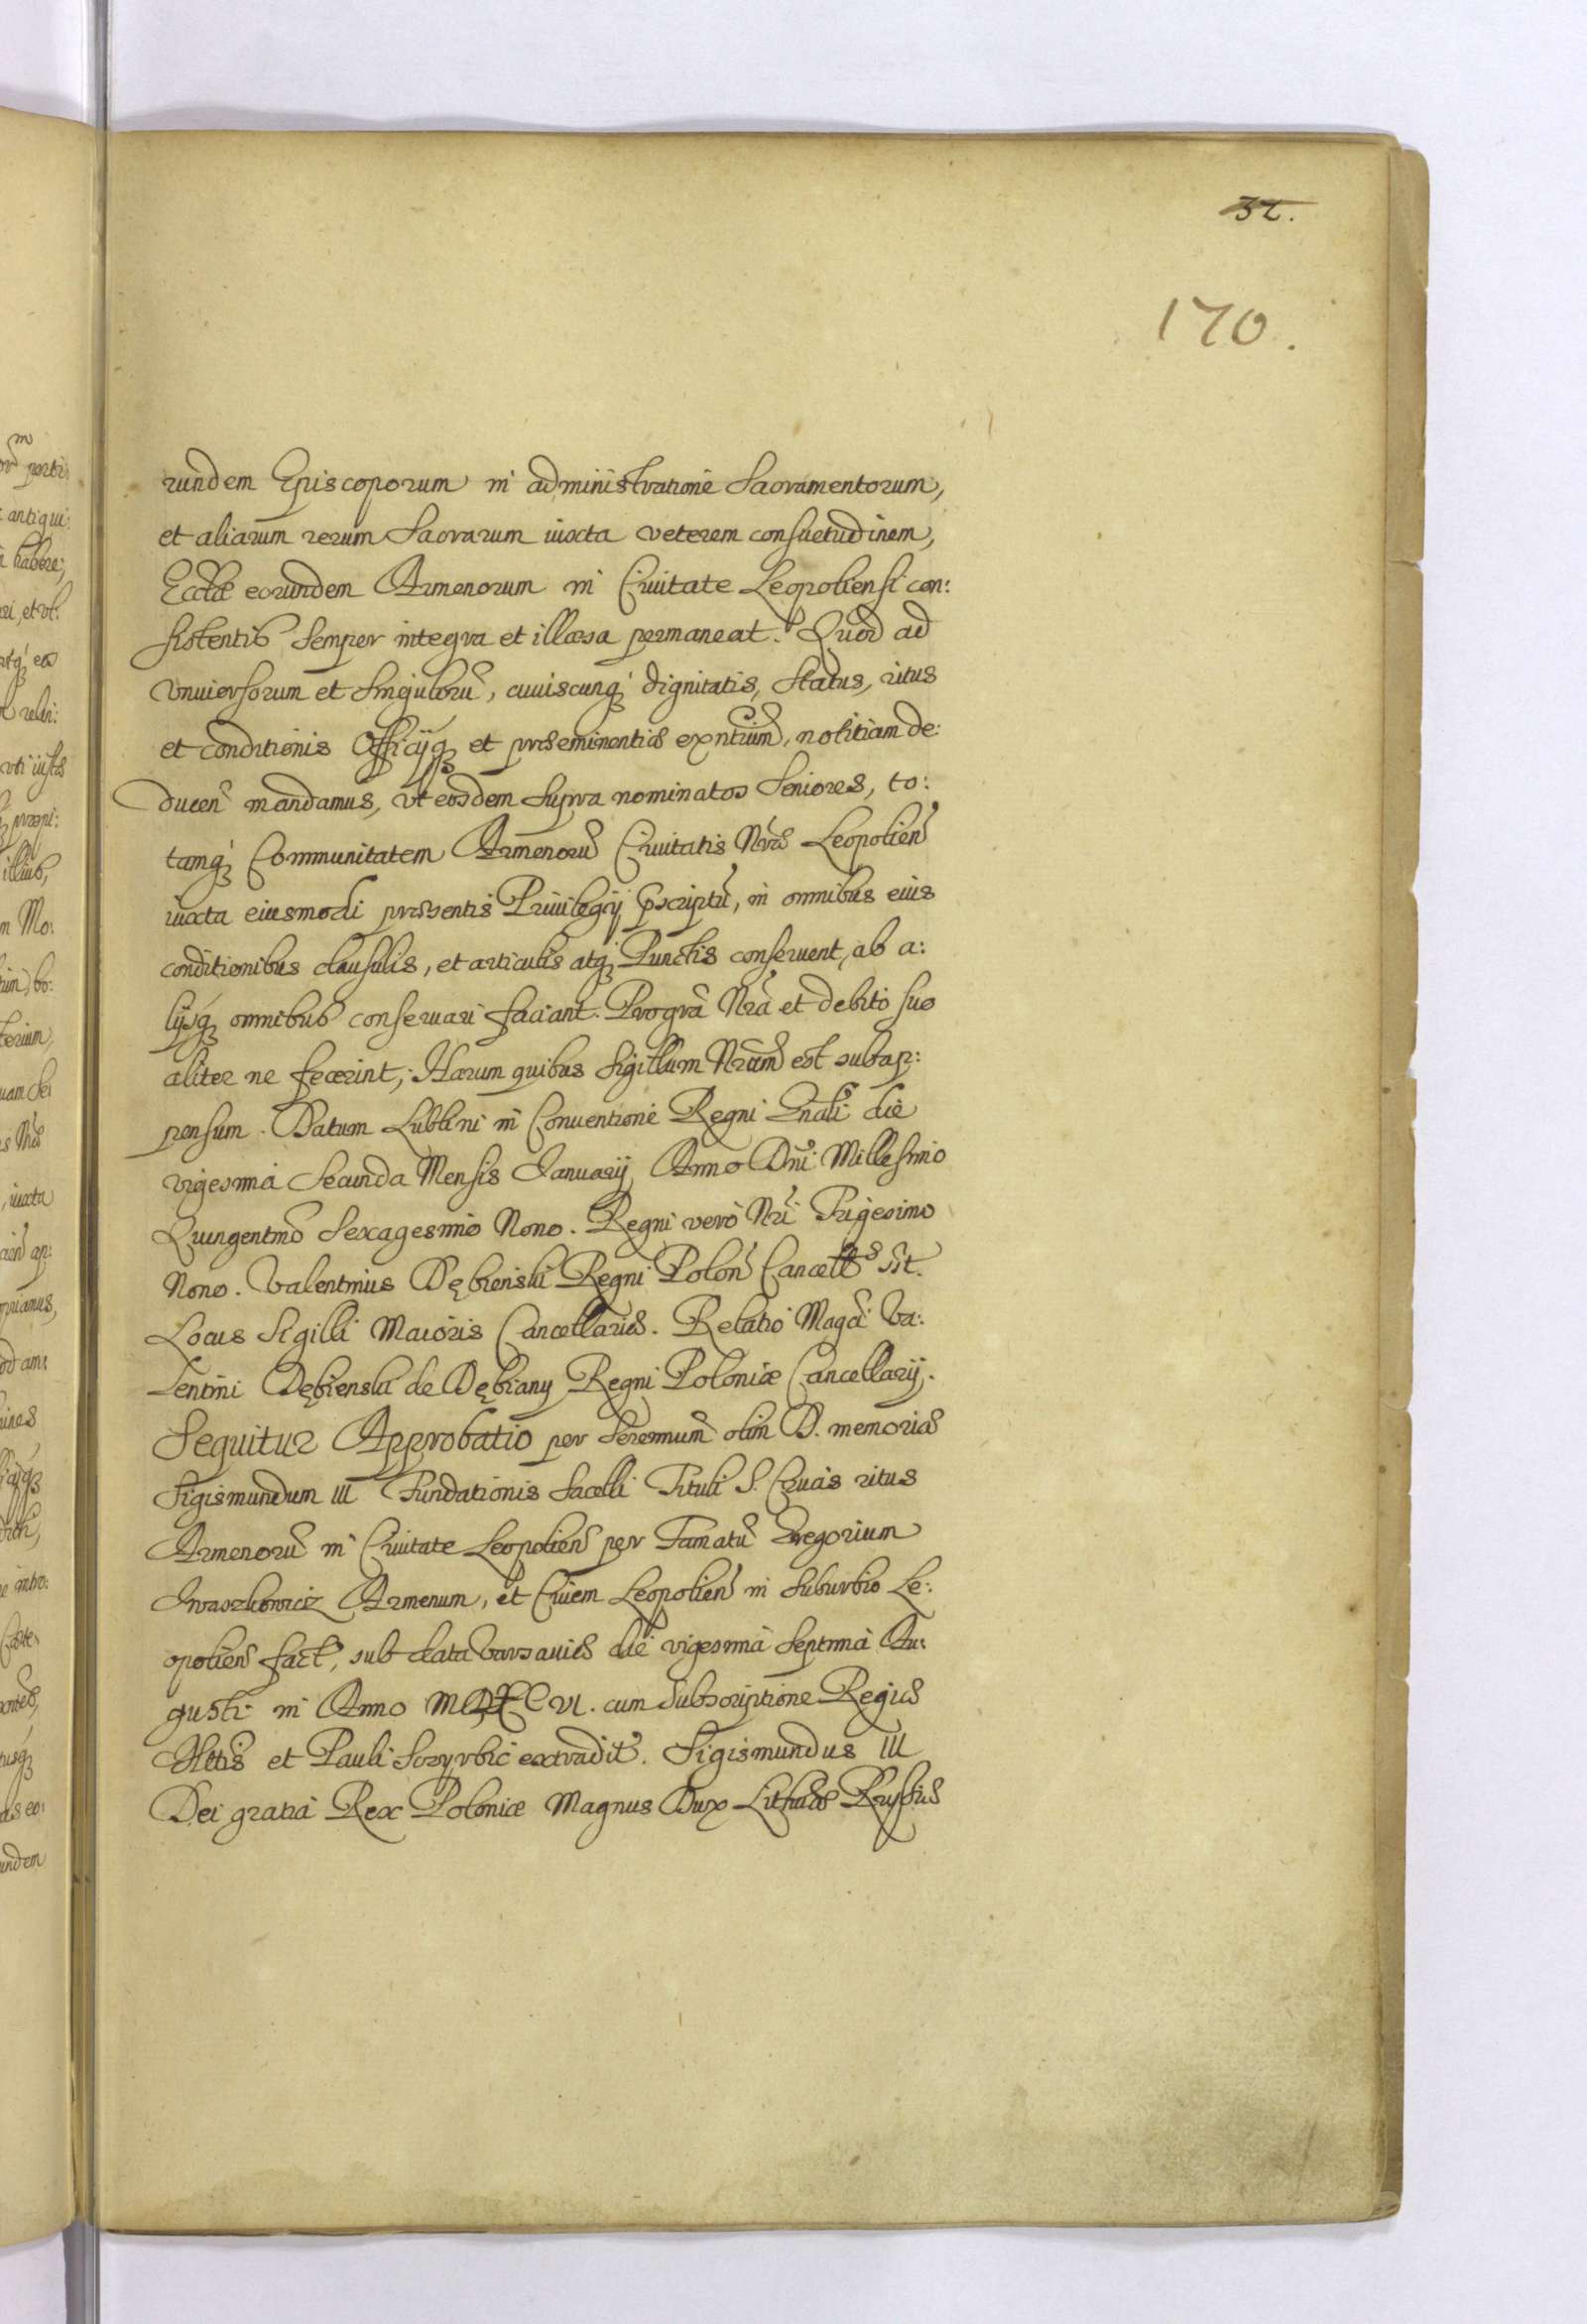 32.
170.
rundem Episcoporum in administratione Sacramentorum,
et aliarum rerum Sacrarum iuxta veterem consuetudinem,
Ecclæ eorundem Armenorum in Ciuitate Leopoliensi con:
sistentis semper integra et illæsa permaneat. Quod ad
vniuersorum et singuloru, cuiuscunq dignitatis, status, ritus
et conditionis Officijq et præeminentiæ exntium, notitiam de:
ducen mandamus, vt eosdem supra nominatos Seniores, to:
tamq Communitatem Armenoru Ciuitatis Nræ Leopolien
iuxta eiusmodi præsentis Priuilegij pscriptu, in omnibus eius
conditionibus clausulis, et articulis atq Punctis conseruent, ab a:
lijsq omnibus conseruari faciant. Pro gra Nra et debito suo
aliter ne fecerint, Harum quibus Sigillum Nrum est subap:
pensum. Datum Lublini in Conuentione Regni Gnali die
vigesima Secunda Mensis Januarij Anno Dni Millesimo
Quingentmo Sexagesimo Nono. Regni vero Nri Trigesimo
Nono. Valentinus Dębienski Regni Polon Cancells sst.
Locus Sigilli Maioris Cancellariæ. Relatio Magci Va:
lentini Dębienski de Dębiany Regni Poloniæ Cancellarij.
Sequitur Approbatio per Serenmum olim D. memoriæ
Sigismundum III Fundationis Sacelli Tituli S. Crucis ritus
Armenoru in Ciuitate Leopolien per Famatu Gregorium
Iwaszkowicz Armenum, et Ciuem Leopolien in Suburbio Le:
opolien fact, sub data Varsauiæ die vigesima Septima Au:
gusti in Anno cum Subscriptione Regiæ
Mttis et Pauli extradit. Sigismundus III
Dei gratia Rex Poloniæ Magnus Dux Lithuæ Russiæ